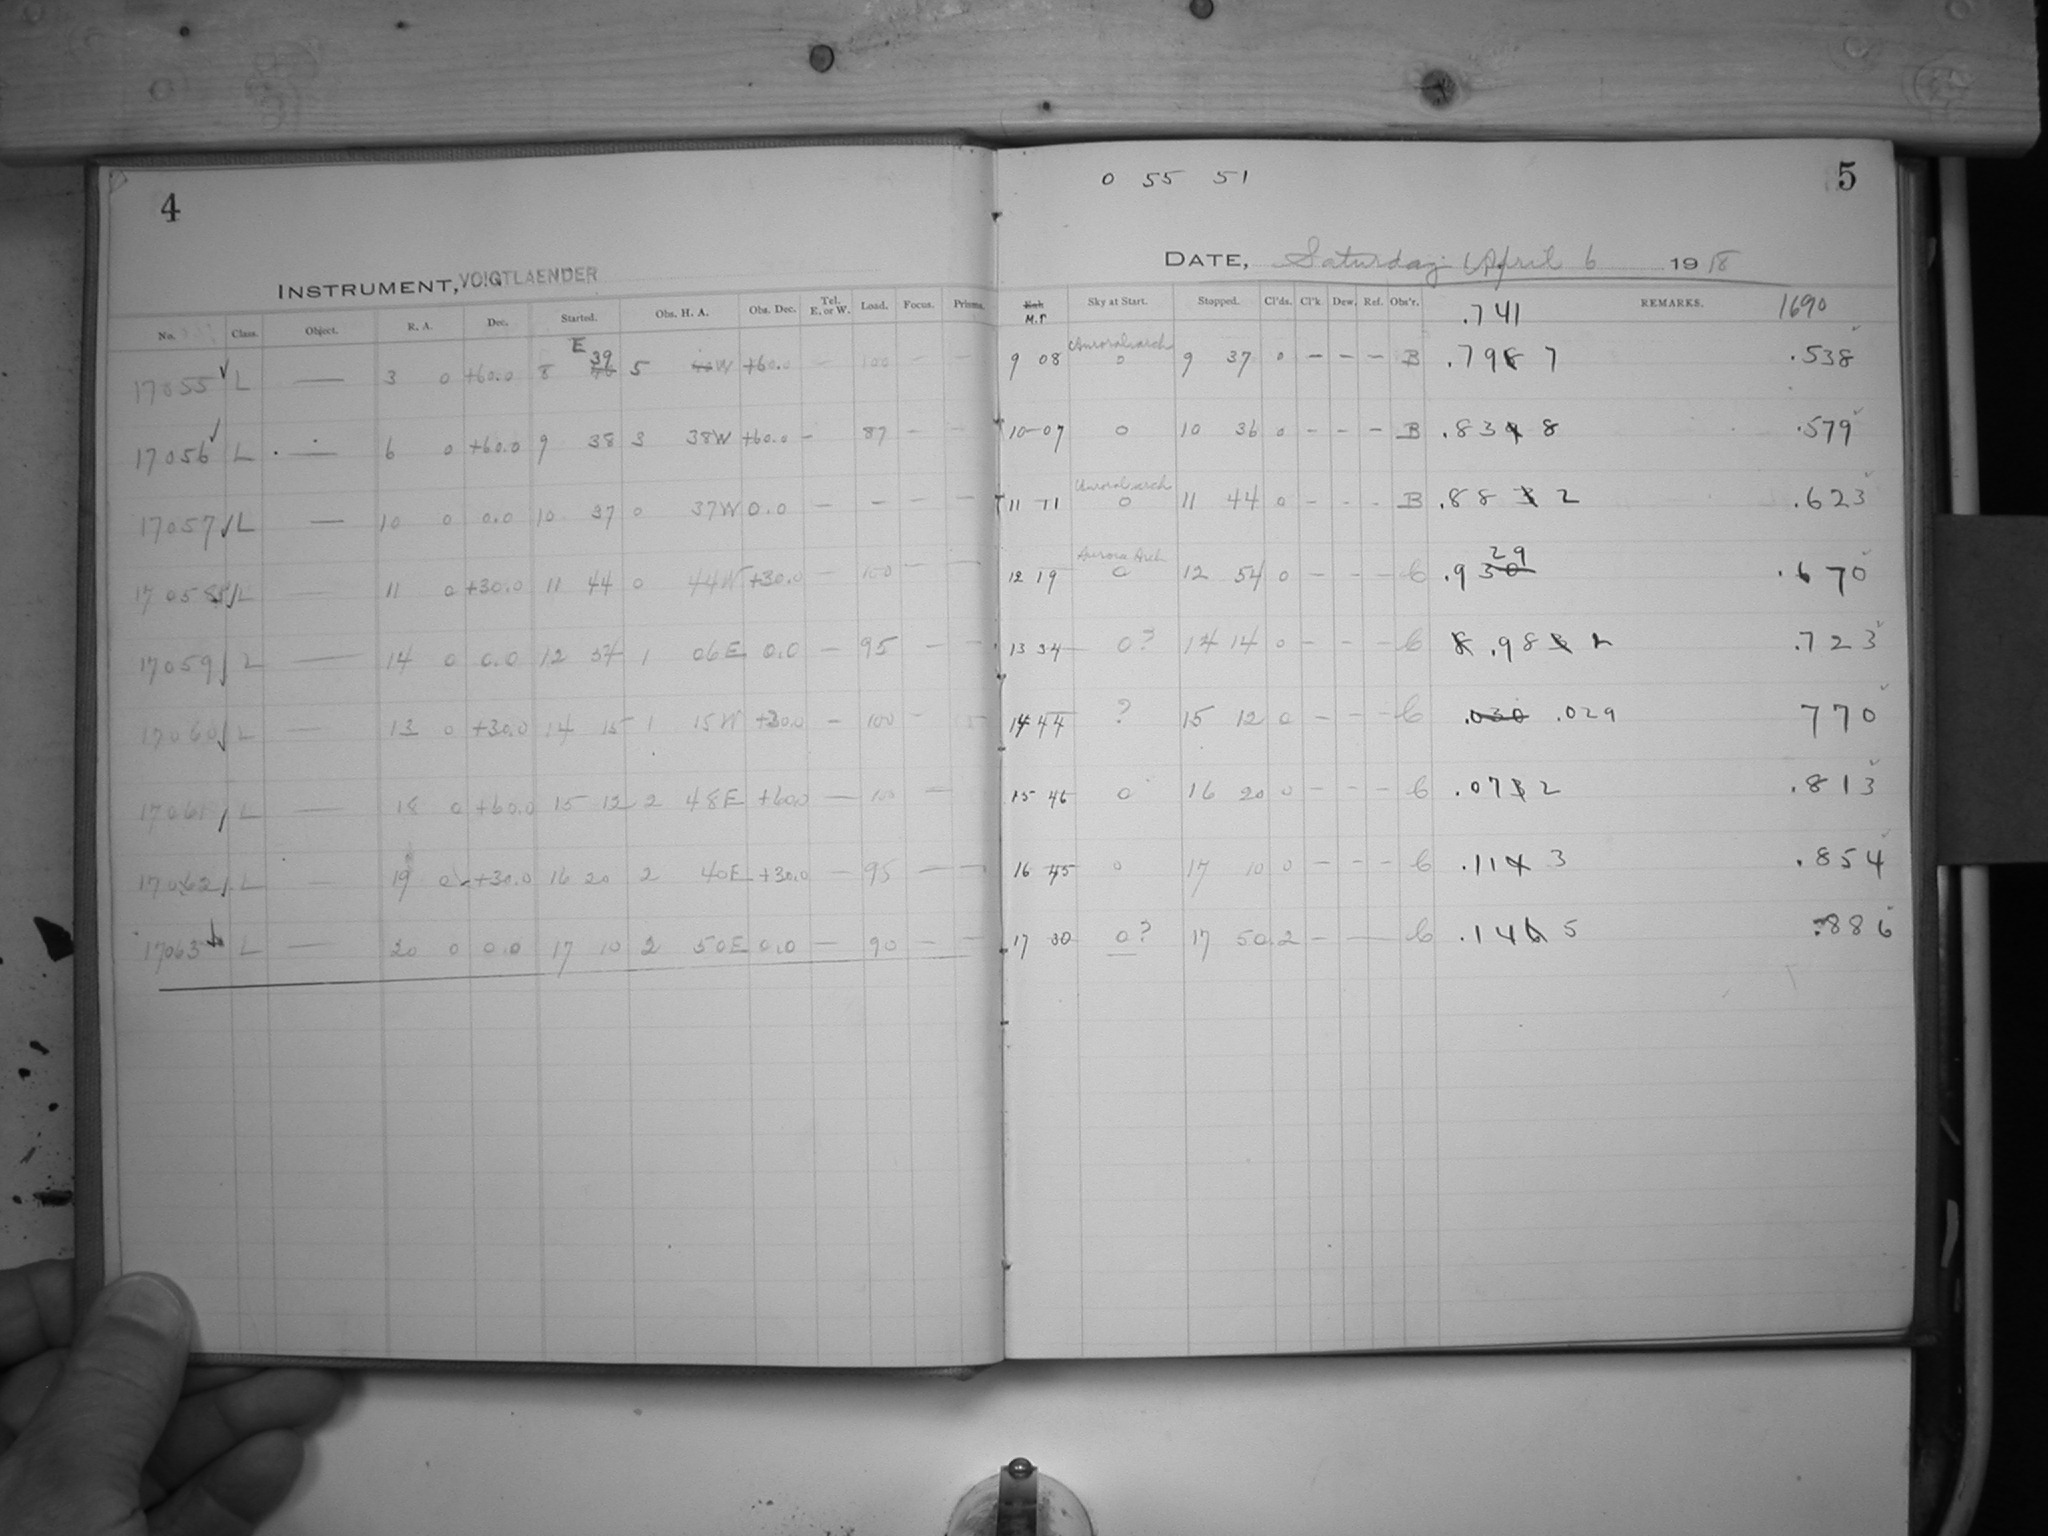 4
INSTRUMENT, VOIGTLAENDER
No. Class. Object. R. A. Dec. Started. Obs. H. A. Obs. Dec. Tel. E. or W. Load. Focus. Prisms.
E 39
17055 L — 3 0 +60.0 8 46 5 W +60.0 — 100 — —
17056 L — 6 0 +60.0 9 38 3 38W +60.0 — 87 — —
17057 L — 10 0 0.0 10 37 0 37W 0.0 — — — —
17058 L — 11 0 +30.0 11 44 0 44W +30.0 — 100 — —
17059 L — 14 0 0.0 12 54 1 06E 0.0 — 95 — —
17060 L — 13 0 +30.0 14 15 1 15W +30.0 — 100 —
17061 L — 18 0 +60.0 15 12 2 48E +60.0 — 100 —
17062 L — 19 0 +30.0 16 20 2 40E +30.0 — 95 — —
17063 L — 20 0 0.0 17 10 2 50E 0.0 — 90 — —
0 55 51
5
DATE, Saturday April 6 1918
M.T. Sky at Start. Stopped. Cl'ds. Cl'k Dew. Ref. Obs'r. REMARKS.
.741 1690
Auroral arch
9 08 0 9 37 0 — — — B .798 7 .538
10 07 0 10 36 0 — — — B .839 8 .579
Auroral arch
11 11 0 11 44 0 — — — B .88 3 2 .623
Aurora Arch
29
12 19 0 12 54 0 — — — C .930 .670
13 34 0? 14 14 0 — — — C .983 2 .723
14 44 ? 15 12 0 — — — C .030 .029 770
15 46 0 16 20 0 — — — C .073 2 .813
16 45 0 17 10 0 — — — C .114 3 .854
17 30 0? 17 50 2 — — C .146 5 .886